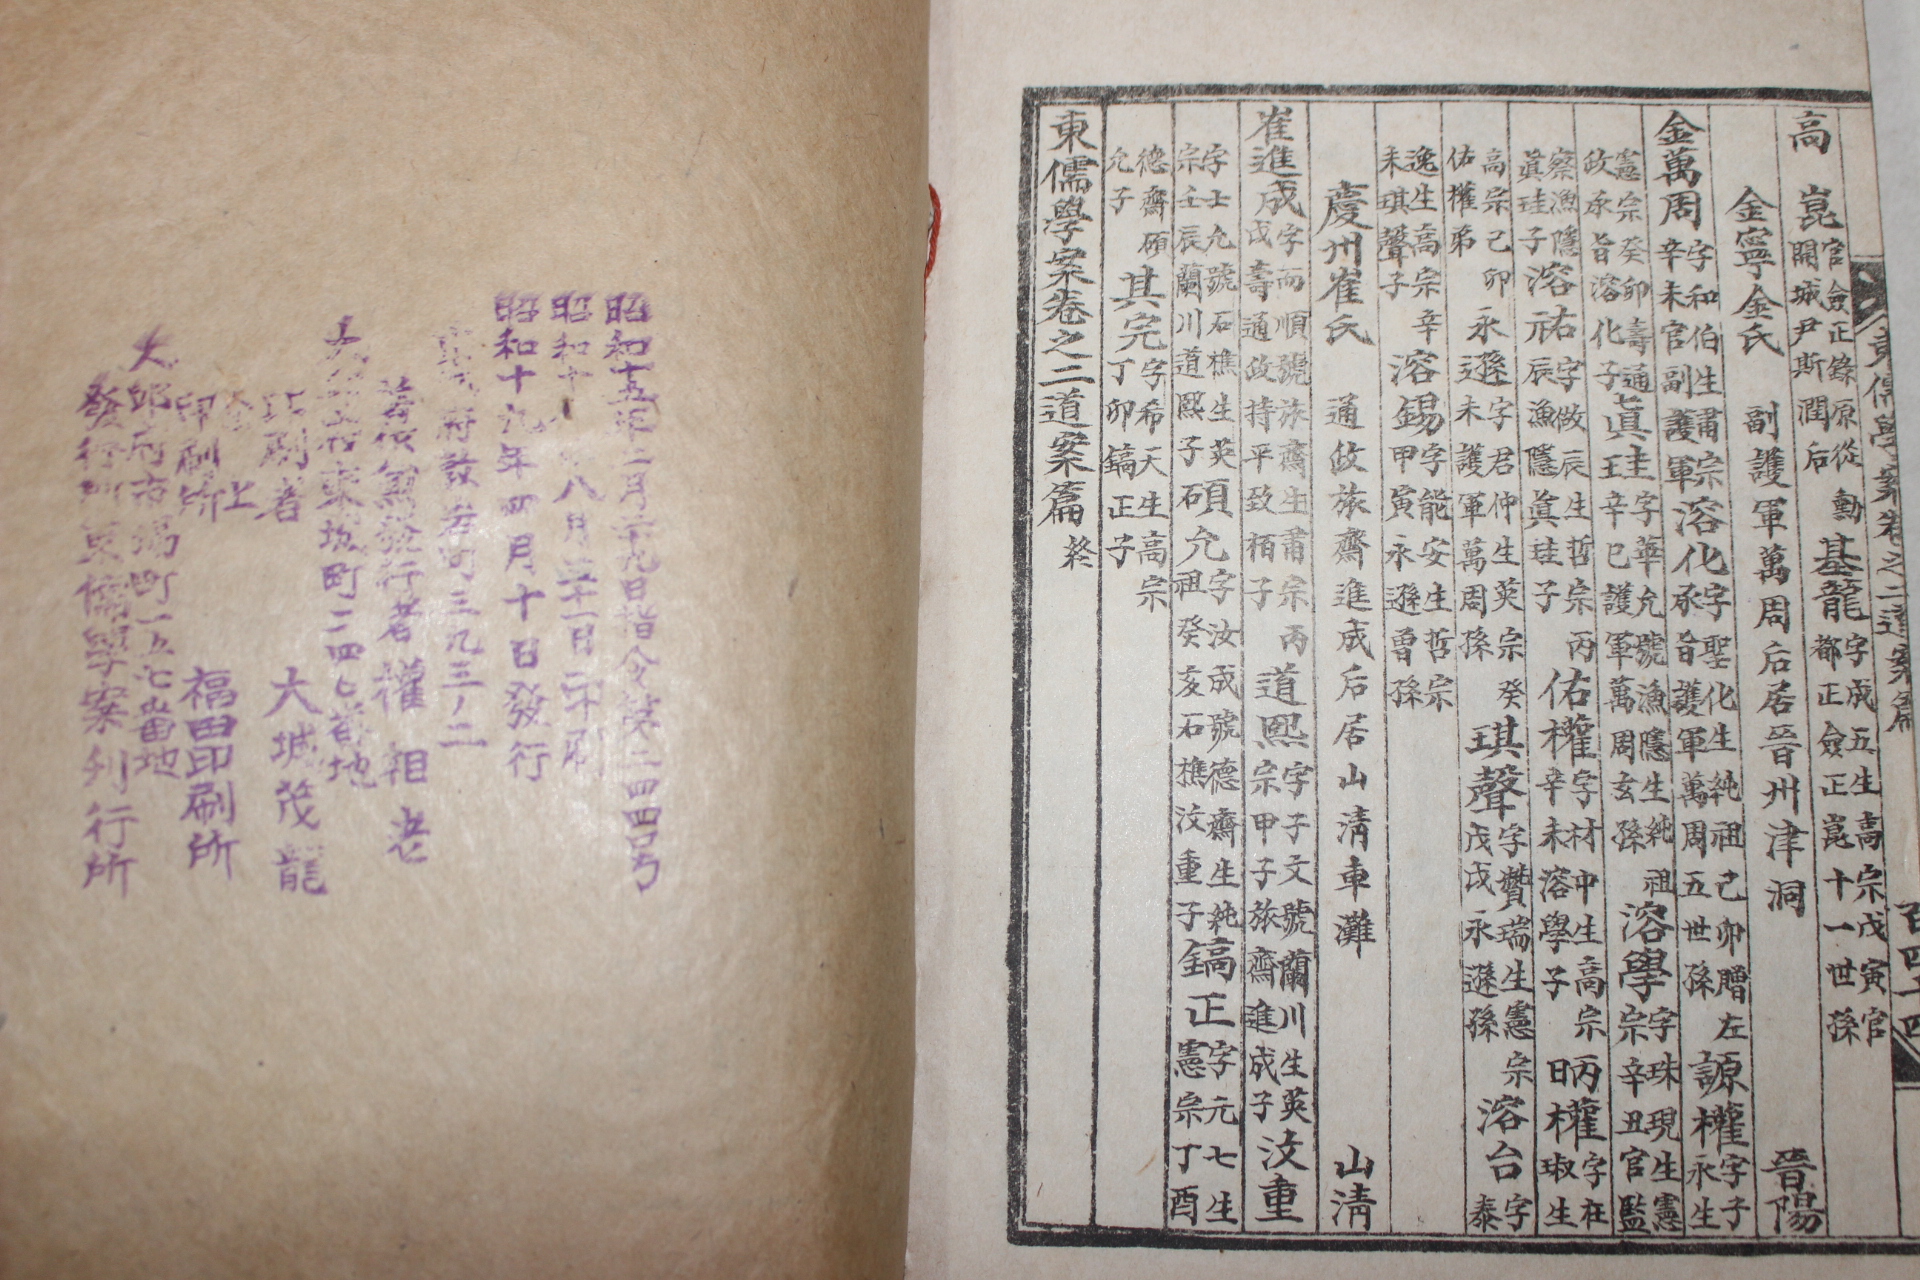 東儒學案卷之二道案篇
百四十四
高崑官僉正錄原從勳開城尹斯潤后 基龍字成五生高宗戊寅官都正僉正崑十一世孫
金寧金氏 副護軍萬周后居晉州津洞 晉陽
金萬周字和伯生肅宗辛未官副護軍 溶化字聖化生純祖己卯贈左承旨護軍萬周五世孫 謜權字子永生
憲宗癸卯壽通政承旨溶化子 眞珪字華允號漁隱生純祖辛巳護軍萬周玄孫 溶學字珠現生憲宗辛丑官監
察漁隱眞珪子 溶祐字做辰生哲宗丙辰漁隱眞珪子 佑權字材中生高宗辛未溶學子 昞權字在珋生
高宗己卯佑權弟 永遜字君仲生英宗癸未護軍萬周孫 琪聲字贊瑞生憲宗戊戌永遜孫 溶台字泰
逸生高宗辛未琪聲子 溶錫字能安生哲宗甲寅永遜曾孫
慶州崔氏 通政旅齋進成后居山淸車灘 山淸
崔進成字而順號旅齋生肅宗丙戌壽通政持平致栢子 道熙字子文號蘭川生英宗甲子旅齋進成子 汶重
字士允號石樵生英宗壬辰蘭川道熙子 碩允字汝成號德齋生純祖癸亥石樵汶重子 鎬正字元七生憲宗丁酉
德齋碩允子 其完字希天生高宗丁卯鎬正子
東儒學案卷之二道案篇 終
昭和十五年二月二十九日指令第二四四号
昭和十八月三十一日印刷
昭和十九年四月十日發行
府 町三九三ノ二
著作兼發行者 權相老
大邱府東城町二四七番地
印刷者 大城茂龍
仝上
印刷所 福田印刷所
大邱府市場町一五七番地
發行所東儒學案刊行所